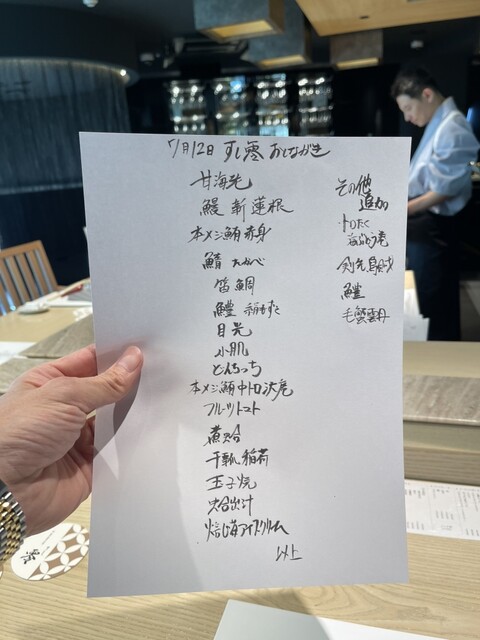 7月12日 すし おしながき
甘海老
鰻 新蓮根
本メジ鮪赤身
鯖 たかべ
笛鯛
鱧
目光
小肌
どんちっち
本メジ鮪中トロ
フルーツトマト
煮蛤
干瓢稲荷
玉子焼
蛤出汁
アイスクリーム
以上
その他
追加
トロたく
剣先烏賊
鱧
毛蟹雲丹